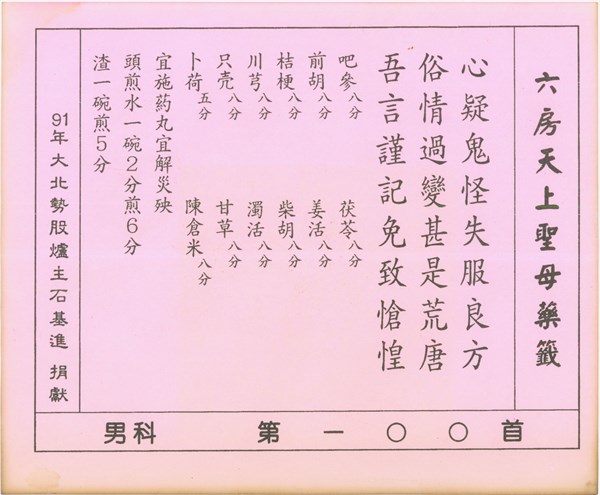 六房天上聖母藥籤
心疑鬼怪失服良方
俗情過變甚是荒唐
吾言謹記免致愴惶
吧參八分 茯苓八分
前胡八分 姜活八分
桔梗八分 柴胡八分
川芎八分 濁活八分
只壳八分 甘草八分
卜荷五分 陳倉米八分
宜施葯丸宜解災殃
頭煎水一碗2分煎6分
渣一碗煎5分
91年大北勢股爐主石基進 捐獻
男科 第一〇〇首